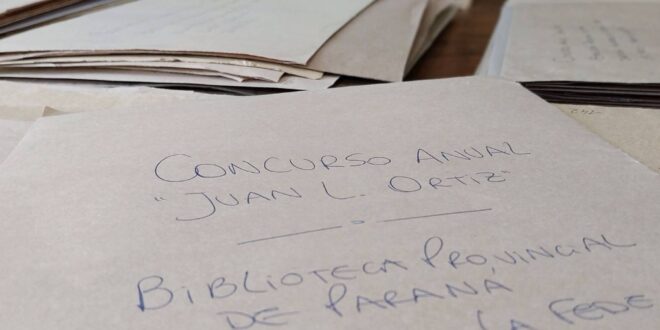 CONCURSO ANUAL
"JUAN L. ORTIZ"
BIBLIOTECA PROVINCIAL
DE PARANÁ
LA FEDE